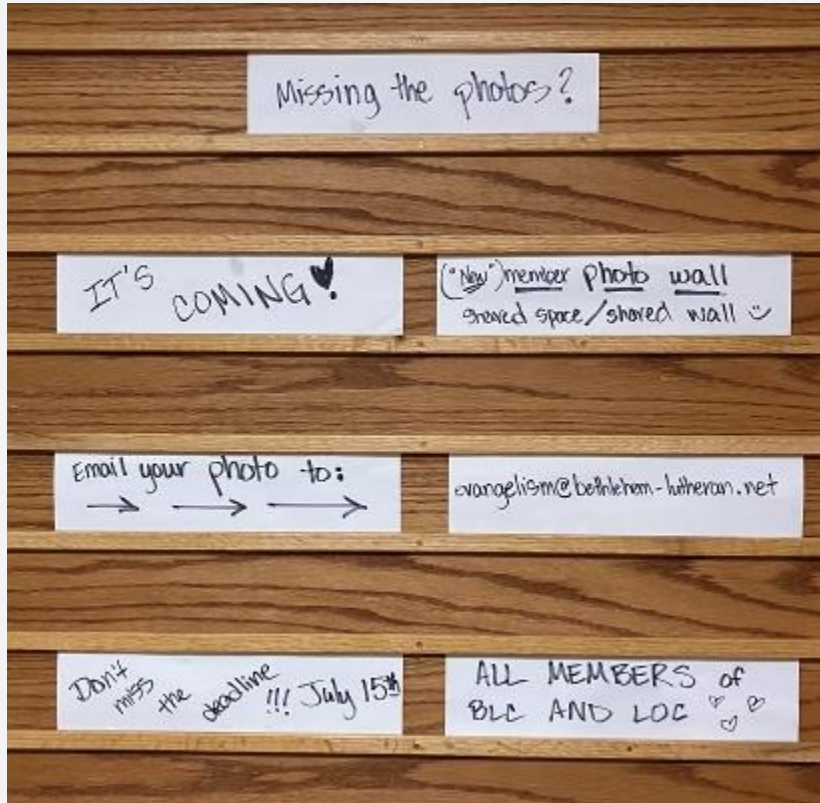 Missing the photos?
IT'S COMING!
("New") member photo wall
shared space/shared wall
Email your photo to:
evangelism@bethlehem-lutheran.net
Don't miss the deadline !!! July 15th
ALL MEMBERS of
BLC AND LOC